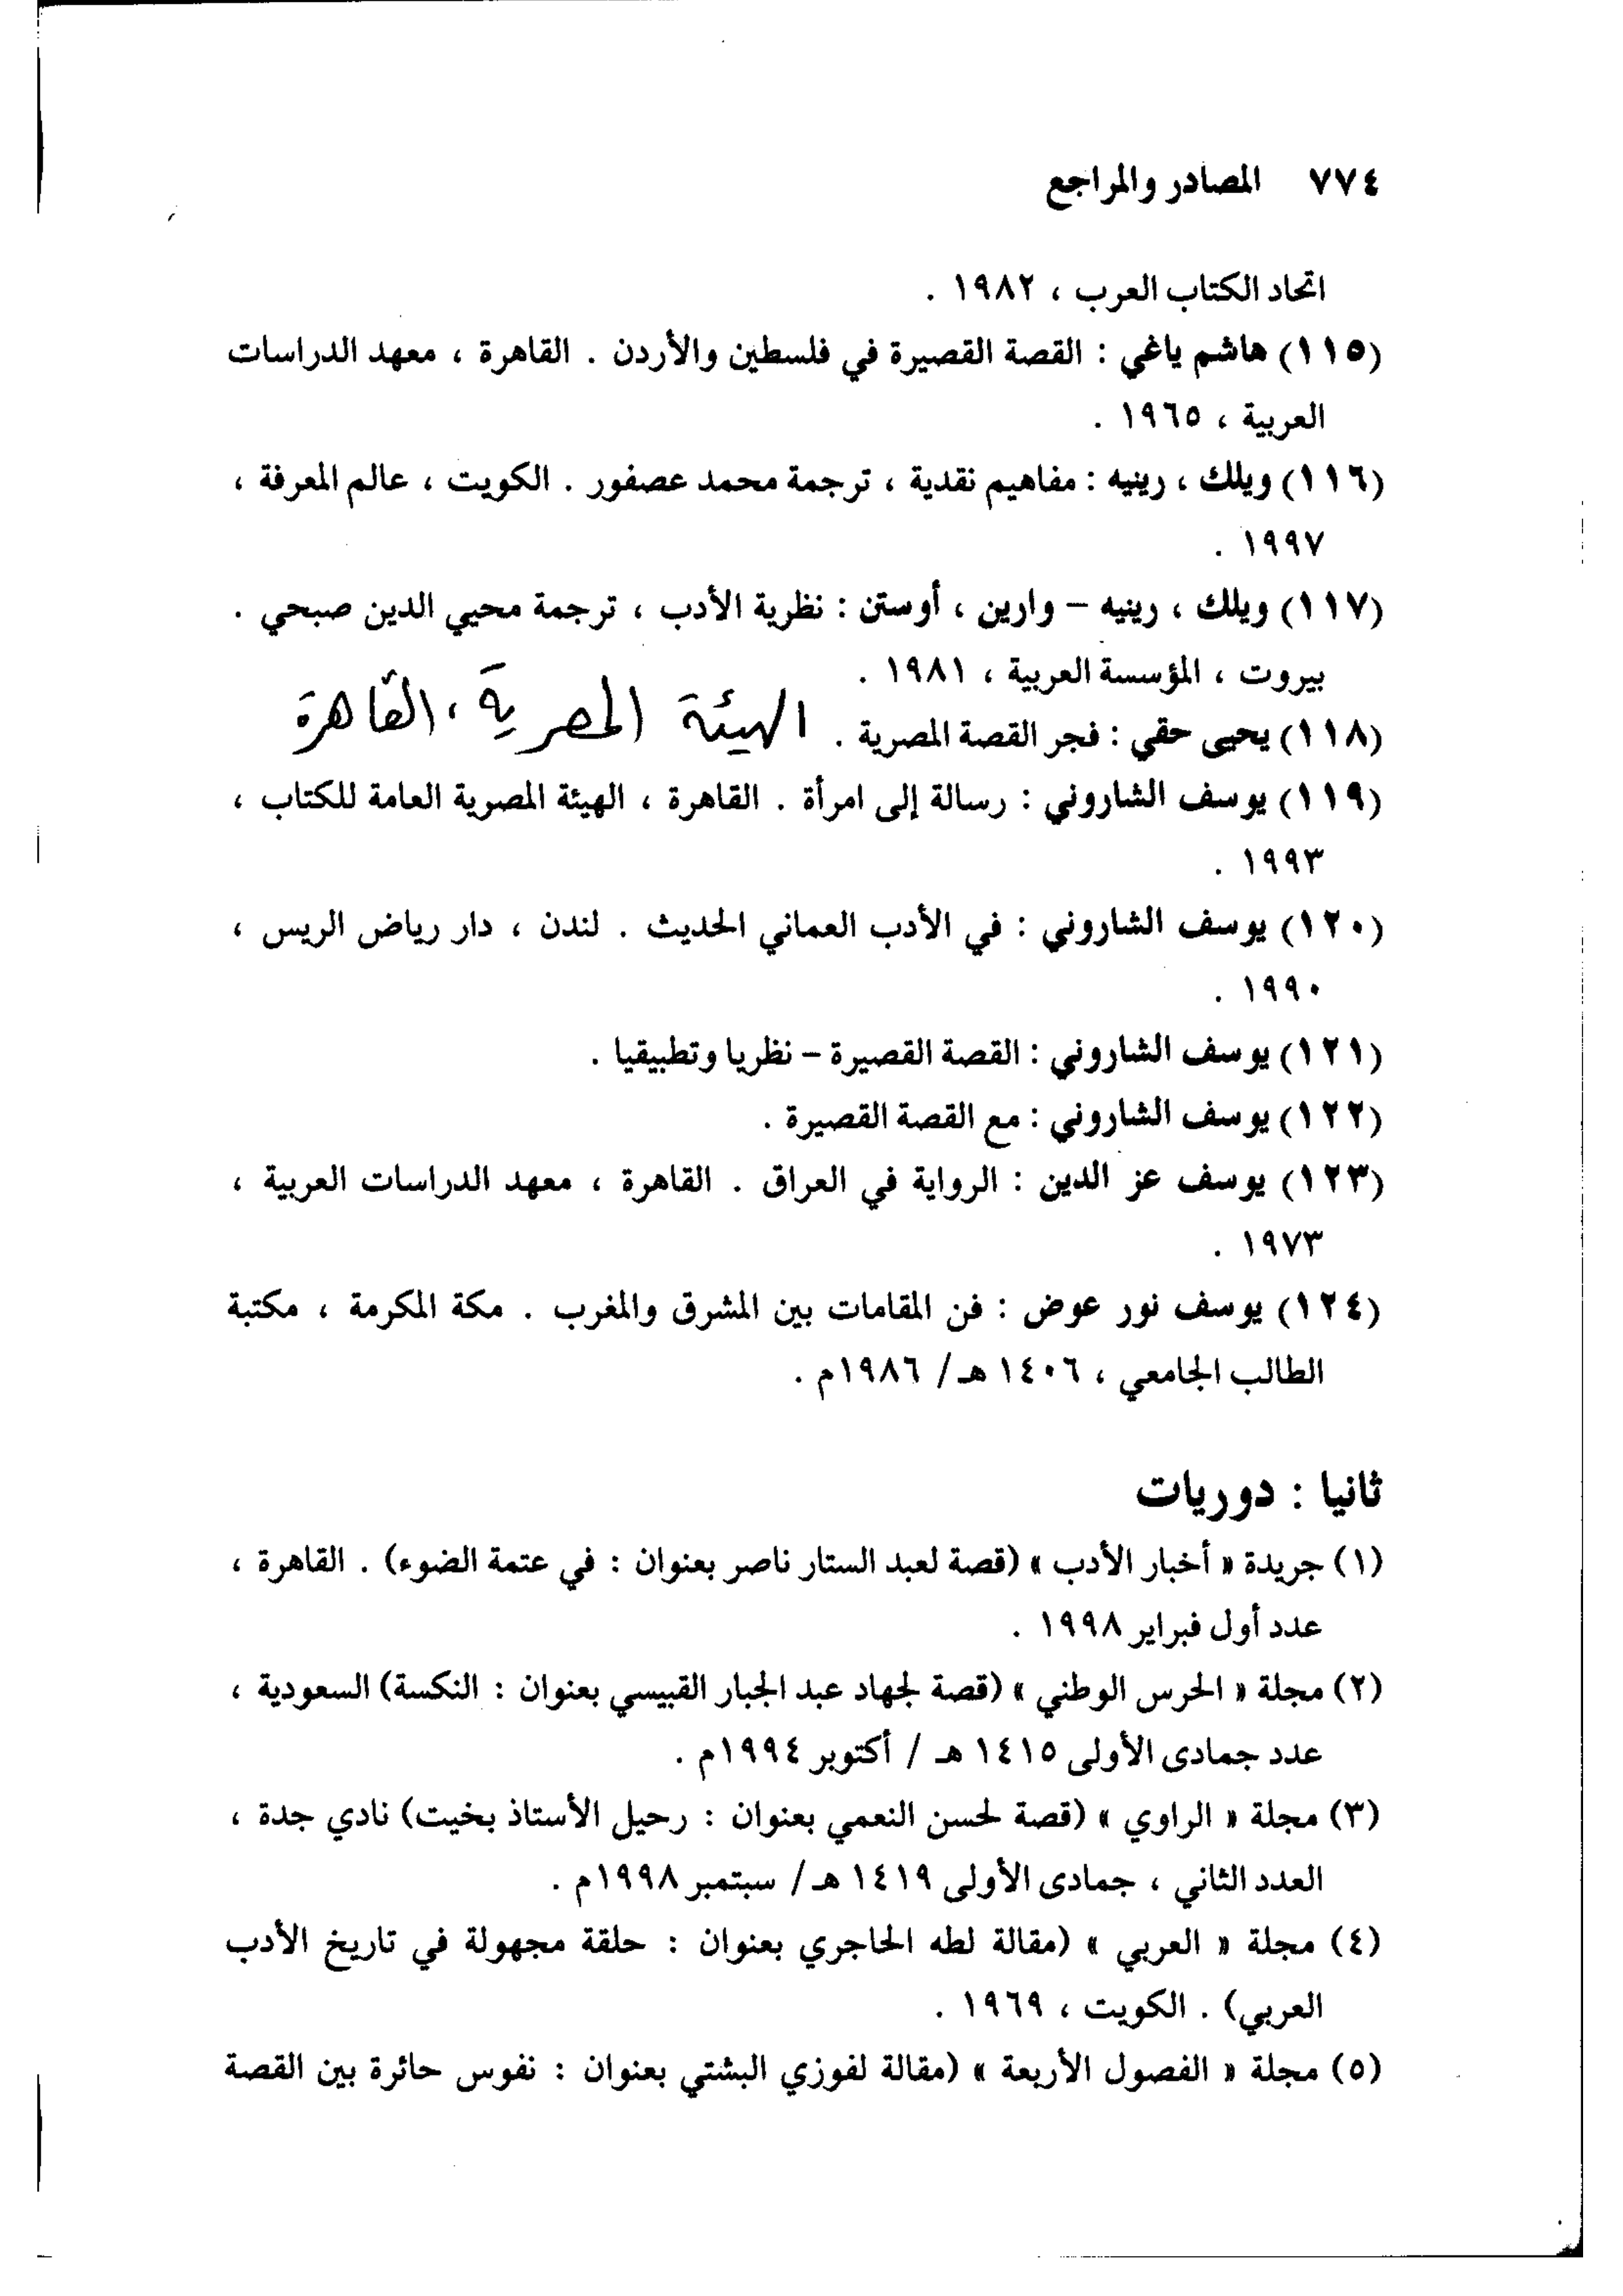 ٧٧٤ المصادر والمراجع
اتحاد الكتاب العرب ، ١٩٨٢ .
(١١٥) هاشم ياغي : القصة القصيرة في فلسطين والأردن . القاهرة ، معهد الدراسات
العربية ، ١٩٦٥ .
(١١٦) ويلك ، رينيه : مفاهيم نقدية ، ترجمة محمد عصفور . الكويت ، عالم المعرفة ،
١٩٩٧ .
(١١٧) ويلك ، رينيه – وارين ، أوستن : نظرية الأدب ، ترجمة محيي الدين صبحي .
بيروت ، المؤسسة العربية ، ١٩٨١ .
(١١٨) يحيى حقي : فجر القصة المصرية . الهيئة المصرية ، القاهرة
(١١٩) يوسف الشاروني : رسالة إلى امرأة . القاهرة ، الهيئة المصرية العامة للكتاب ،
١٩٩٣ .
(١٢٠) يوسف الشاروني : في الأدب العماني الحديث . لندن ، دار رياض الريس ،
١٩٩٠ .
(١٢١) يوسف الشاروني : القصة القصيرة – نظريا وتطبيقيا .
(١٢٢) يوسف الشاروني : مع القصة القصيرة .
(١٢٣) يوسف عز الدين : الرواية في العراق . القاهرة ، معهد الدراسات العربية ،
١٩٧٣ .
(١٢٤) يوسف نور عوض : فن المقامات بين المشرق والمغرب . مكة المكرمة ، مكتبة
الطالب الجامعي ، ١٤٠٦ هـ/ ١٩٨٦م .
ثانيا : دوريات
(١) جريدة « أخبار الأدب » (قصة لعبد الستار ناصر بعنوان : في عتمة الضوء) . القاهرة ،
عدد أول فبراير ١٩٩٨ .
(٢) مجلة « الحرس الوطني » (قصة لجهاد عبد الجبار القبيسي بعنوان : النكسة) السعودية ،
عدد جمادى الأولى ١٤١٥ هـ / أكتوبر ١٩٩٤م .
(٣) مجلة « الراوي » (قصة لحسن النعمي بعنوان : رحيل الأستاذ بخيت) نادي جدة ،
العدد الثاني ، جمادى الأولى ١٤١٩ هـ/ سبتمبر ١٩٩٨م .
(٤) مجلة « العربي » (مقالة لطه الحاجري بعنوان : حلقة مجهولة في تاريخ الأدب
العربي) . الكويت ، ١٩٦٩ .
(٥) مجلة « الفصول الأربعة » (مقالة لفوزي البشتي بعنوان : نفوس حائرة بين القصة